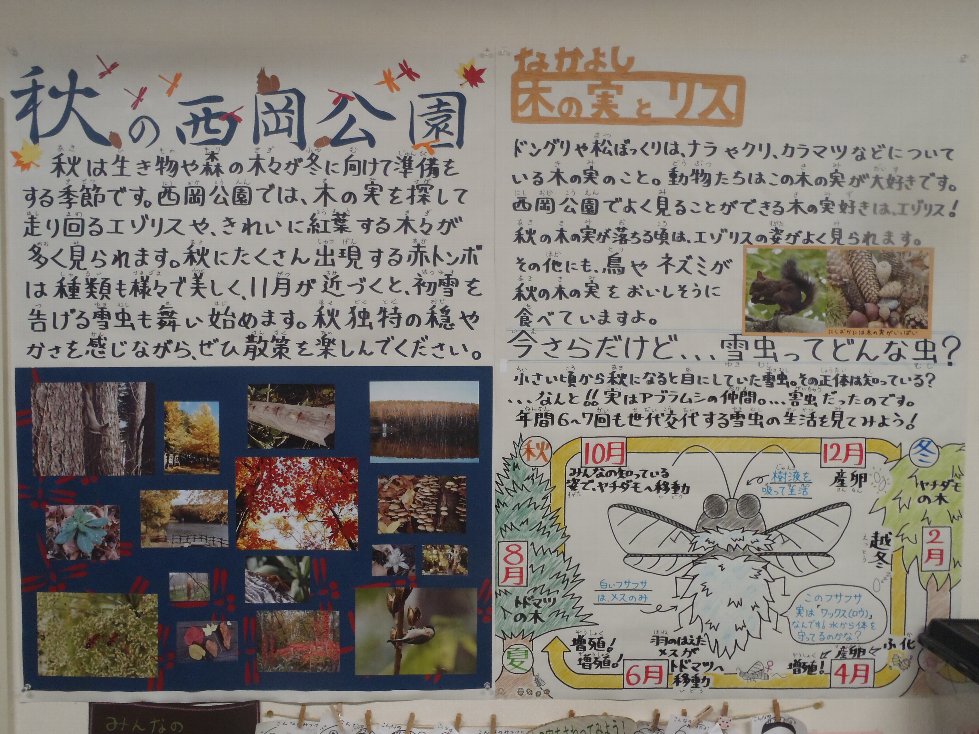 秋の西岡公園
秋は生き物や森の木々が冬に向けて準備を
する季節です。西岡公園では、木の実を探して
走り回るエゾリスや、きれいに紅葉する木々が
多く見られます。秋にたくさん出現する赤トンボ
は種類も様々で美しく、11月が近づくと、初雪を
告げる雪虫も舞い始めます。秋独特の穏や
かさを感じながら、ぜひ散策を楽しんでください。
なかよし
木の実とリス
ドングリや松ぼっくりは、ナラやクリ、カラマツなどについて
いる木の実のこと。動物たちはこの木の実が大好きです。
西岡公園でよく見ることができる木の実好きは、エゾリス!
秋の木の実が落ちる頃は、エゾリスの姿がよく見られます。
その他にも、鳥やネズミが
秋の木の実をおいしそうに
食べていますよ。
にしおかには木の実がいっぱい
今さらだけど、、、雪虫ってどんな虫?
小さい頃から秋になると目にしていた雪虫。その正体は知っている?
、、、なんと!!実はアブラムシの仲間。、、、害虫だったのです。
年間6~7回も世代交代する雪虫の生活を見てみよう!
秋
10月
みんなの知っている
姿で、ヤチダモへ移動
樹液を
吸って生活
12月
産卵
冬
ヤチダモ
の木
越冬
2月
8月
トドマツ
の木
白いフサフサ
はメスのみ
このフサフサ
実は「ワックス(ロウ)」
なんです。水から体を
守ってるのかな?
夏
増殖。
増殖!
6月
羽のはえた
メスが
トドマツへ
移動
増殖!
産卵
4月
ふ化
みんなの